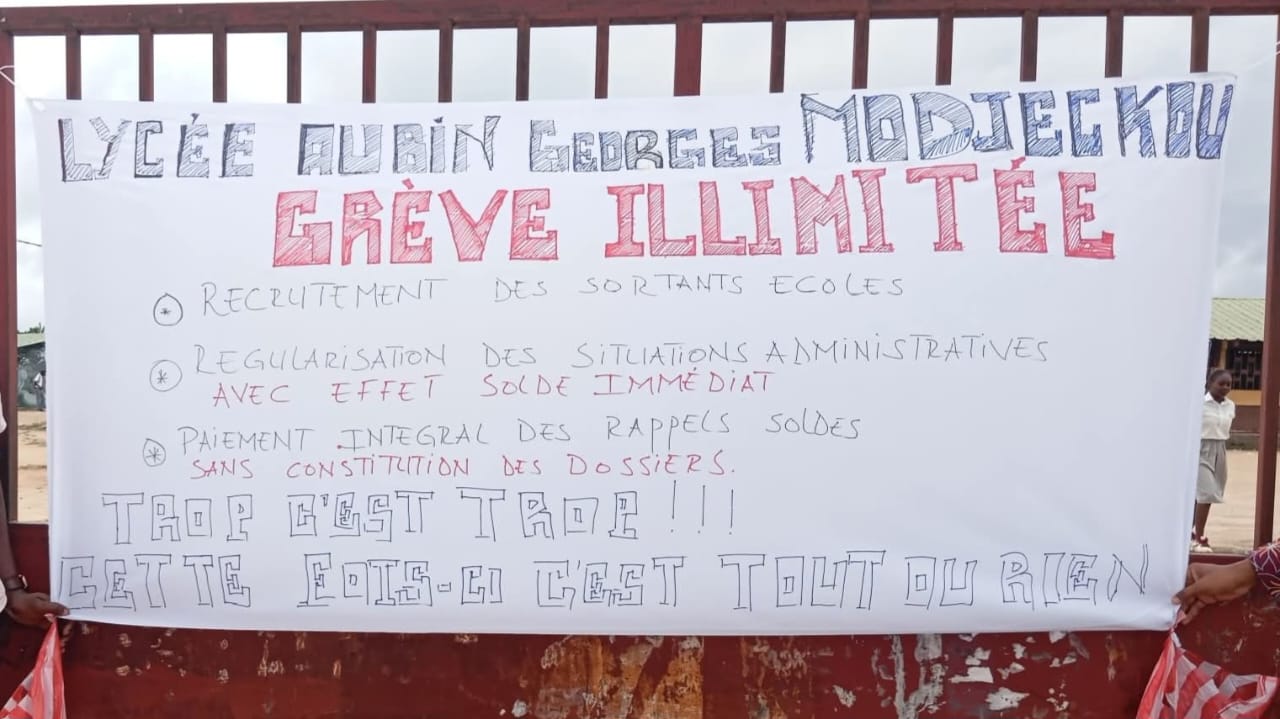 LYCÉE AUBIN GEORGES MODJECKOU
GRÈVE ILLIMITÉE
* RECRUTEMENT DES SORTANTS ECOLES
* REGULARISATION DES SITUATIONS ADMINISTRATIVES
AVEC EFFET SOLDE IMMÉDIAT
* PAIEMENT INTEGRAL DES RAPPELS SOLDES
SANS CONSTITUTION DES DOSSIERS.
TROP C'EST TROP !!!
CETTE FOIS-CI C'EST TOUT OU RIEN